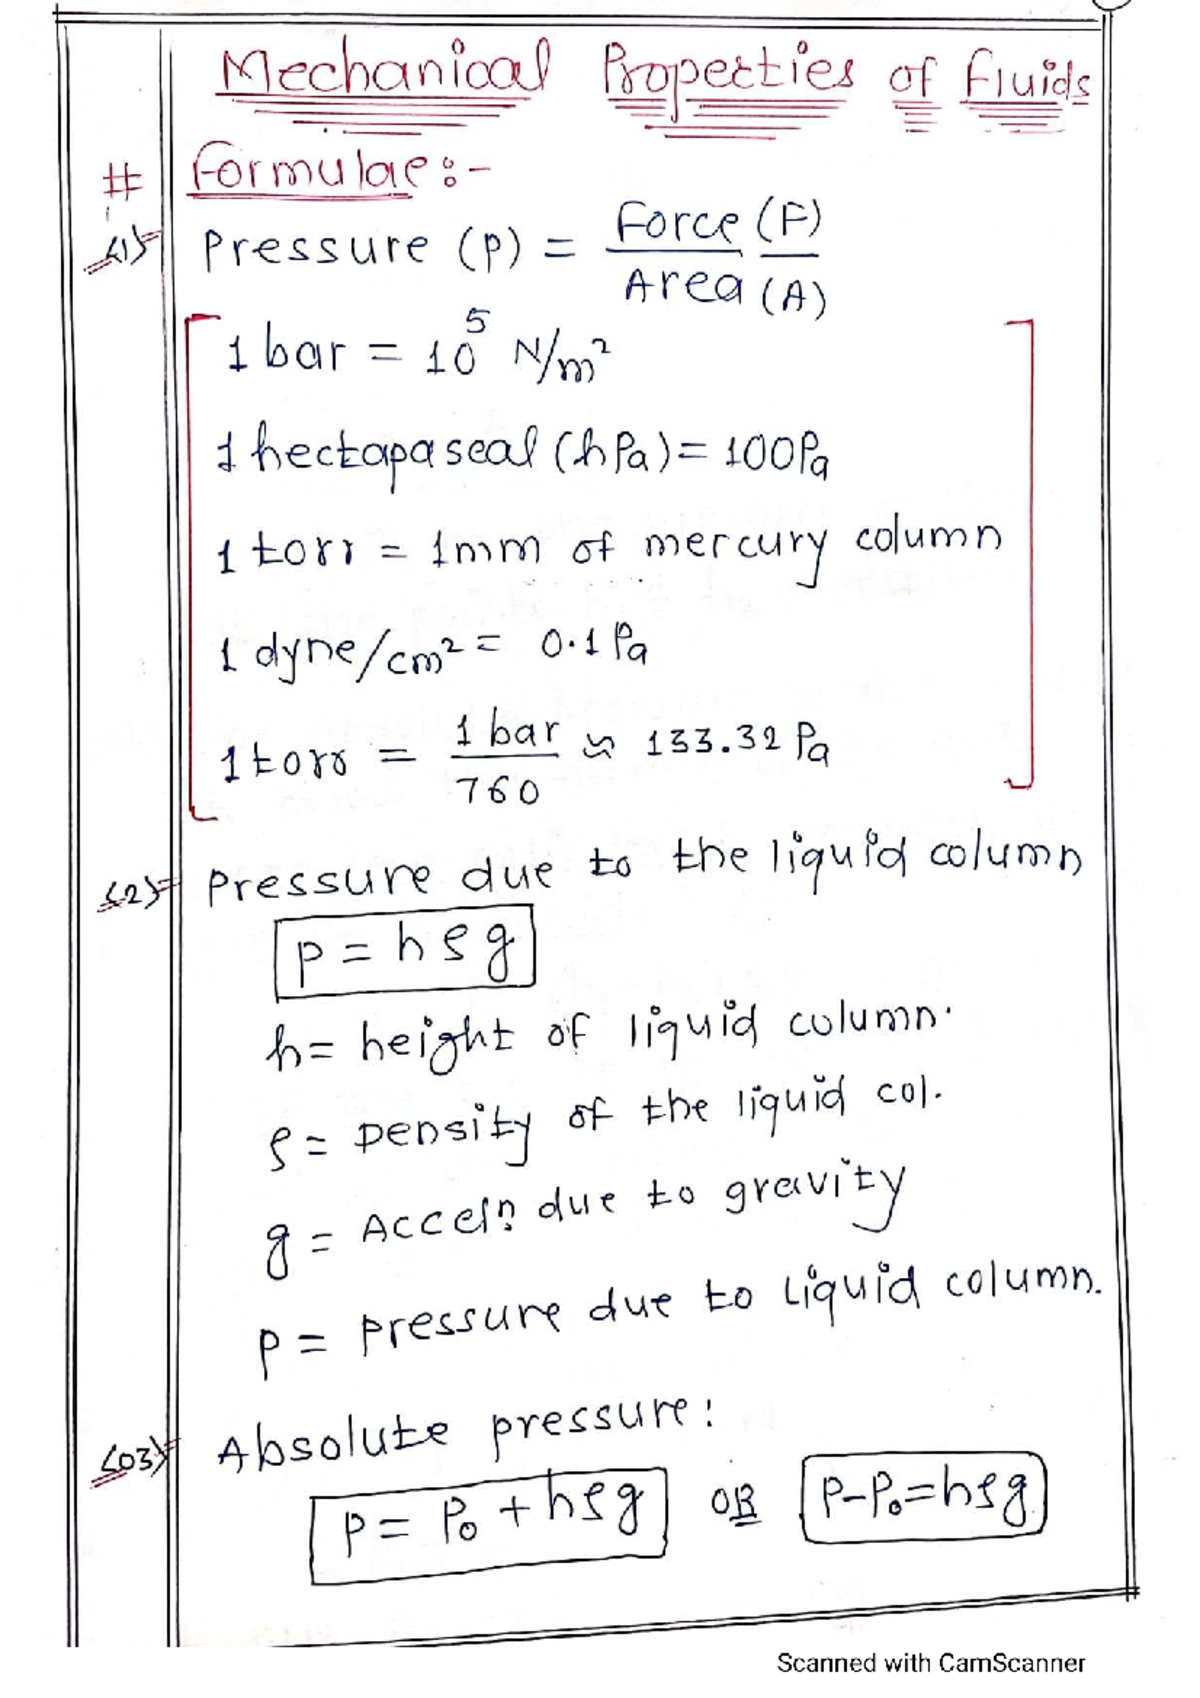 Mechanical Properties of Fluids
# Formulae :-
(1) Pressure (P) = Force (F) / Area (A)
1 bar = 10⁵ N/m²
1 hectapaseal (hPa) = 100Pa
1 torr = 1mm of mercury column
1 dyne/cm² = 0.1 Pa
1 torr = 1 bar / 760 ≈ 133.32 Pa
(2) Pressure due to the liquid column
P = hρg
h = height of liquid column.
ρ = Density of the liquid col.
g = Acceln due to gravity
P = Pressure due to Liquid column.
(03) Absolute pressure :
P = P₀ + hρg OR P-P₀ = hρg
Scanned with CamScanner